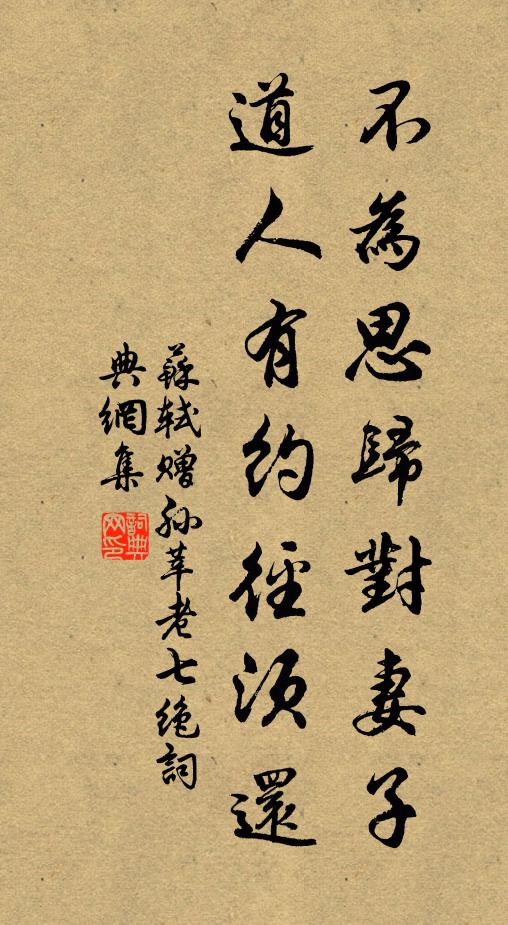 不為思歸對妻子
道人有約徑須還
蘇軾贈孙莘老七絶詞
典網集
詞典
网印